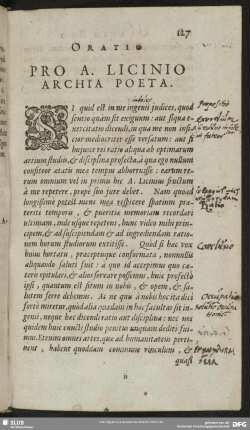 127
ORATIO
PRO A. LICINIO
ARCHIA POETA.
SI quid est in me ingenii iudices, quod
sentio quàm sit exiguum: aut siqua e-
xercitatio dicendi, in qua me non infi-
cior mediocriter esse versatum: aut si
huiusce rei ratio aliqua ab optimarum
artium studiis, & disciplina profecta, à qua ego nullum
confiteor ætatis meæ tempus abhorruisse: earum re-
rum omnium vel in primis hic A. Licinius fructum
à me repetere, prope suo iure debet. Nam quoad
longissime potest mens mea respicere spatium præ-
teriti temporis, & pueritiæ memoriam recordari
ultimam, inde usque repetens, hunc video mihi prin-
cipem, & ad suscipiendam & ad ingrediendam ratio-
nem horum studiorum extitisse. Quod si hæc vox
huius hortatu, præceptisque conformata, nonnullis
aliquando saluti fuit: à quo id accepimus quo cæ-
teris opitulari, & alios seruare possemus, huic profectò
ipsi, quantum est situm in nobis, & opem, & sa-
lutem ferre debemus. Ac ne quis à nobis hoc ita dici
fortè miretur, quod alia quædam in hoc facultas sit in-
genii, neque hæc dicendi ratio aut disciplina: nec nos
quidem huic cuncti studio penitus unquam dediti fui-
mus. Etenim omnes artes, quæ ad humanitatem perti-
nent, habent quoddam commune vinculum, &
quasi
Propositio
Conclusio
SLUB